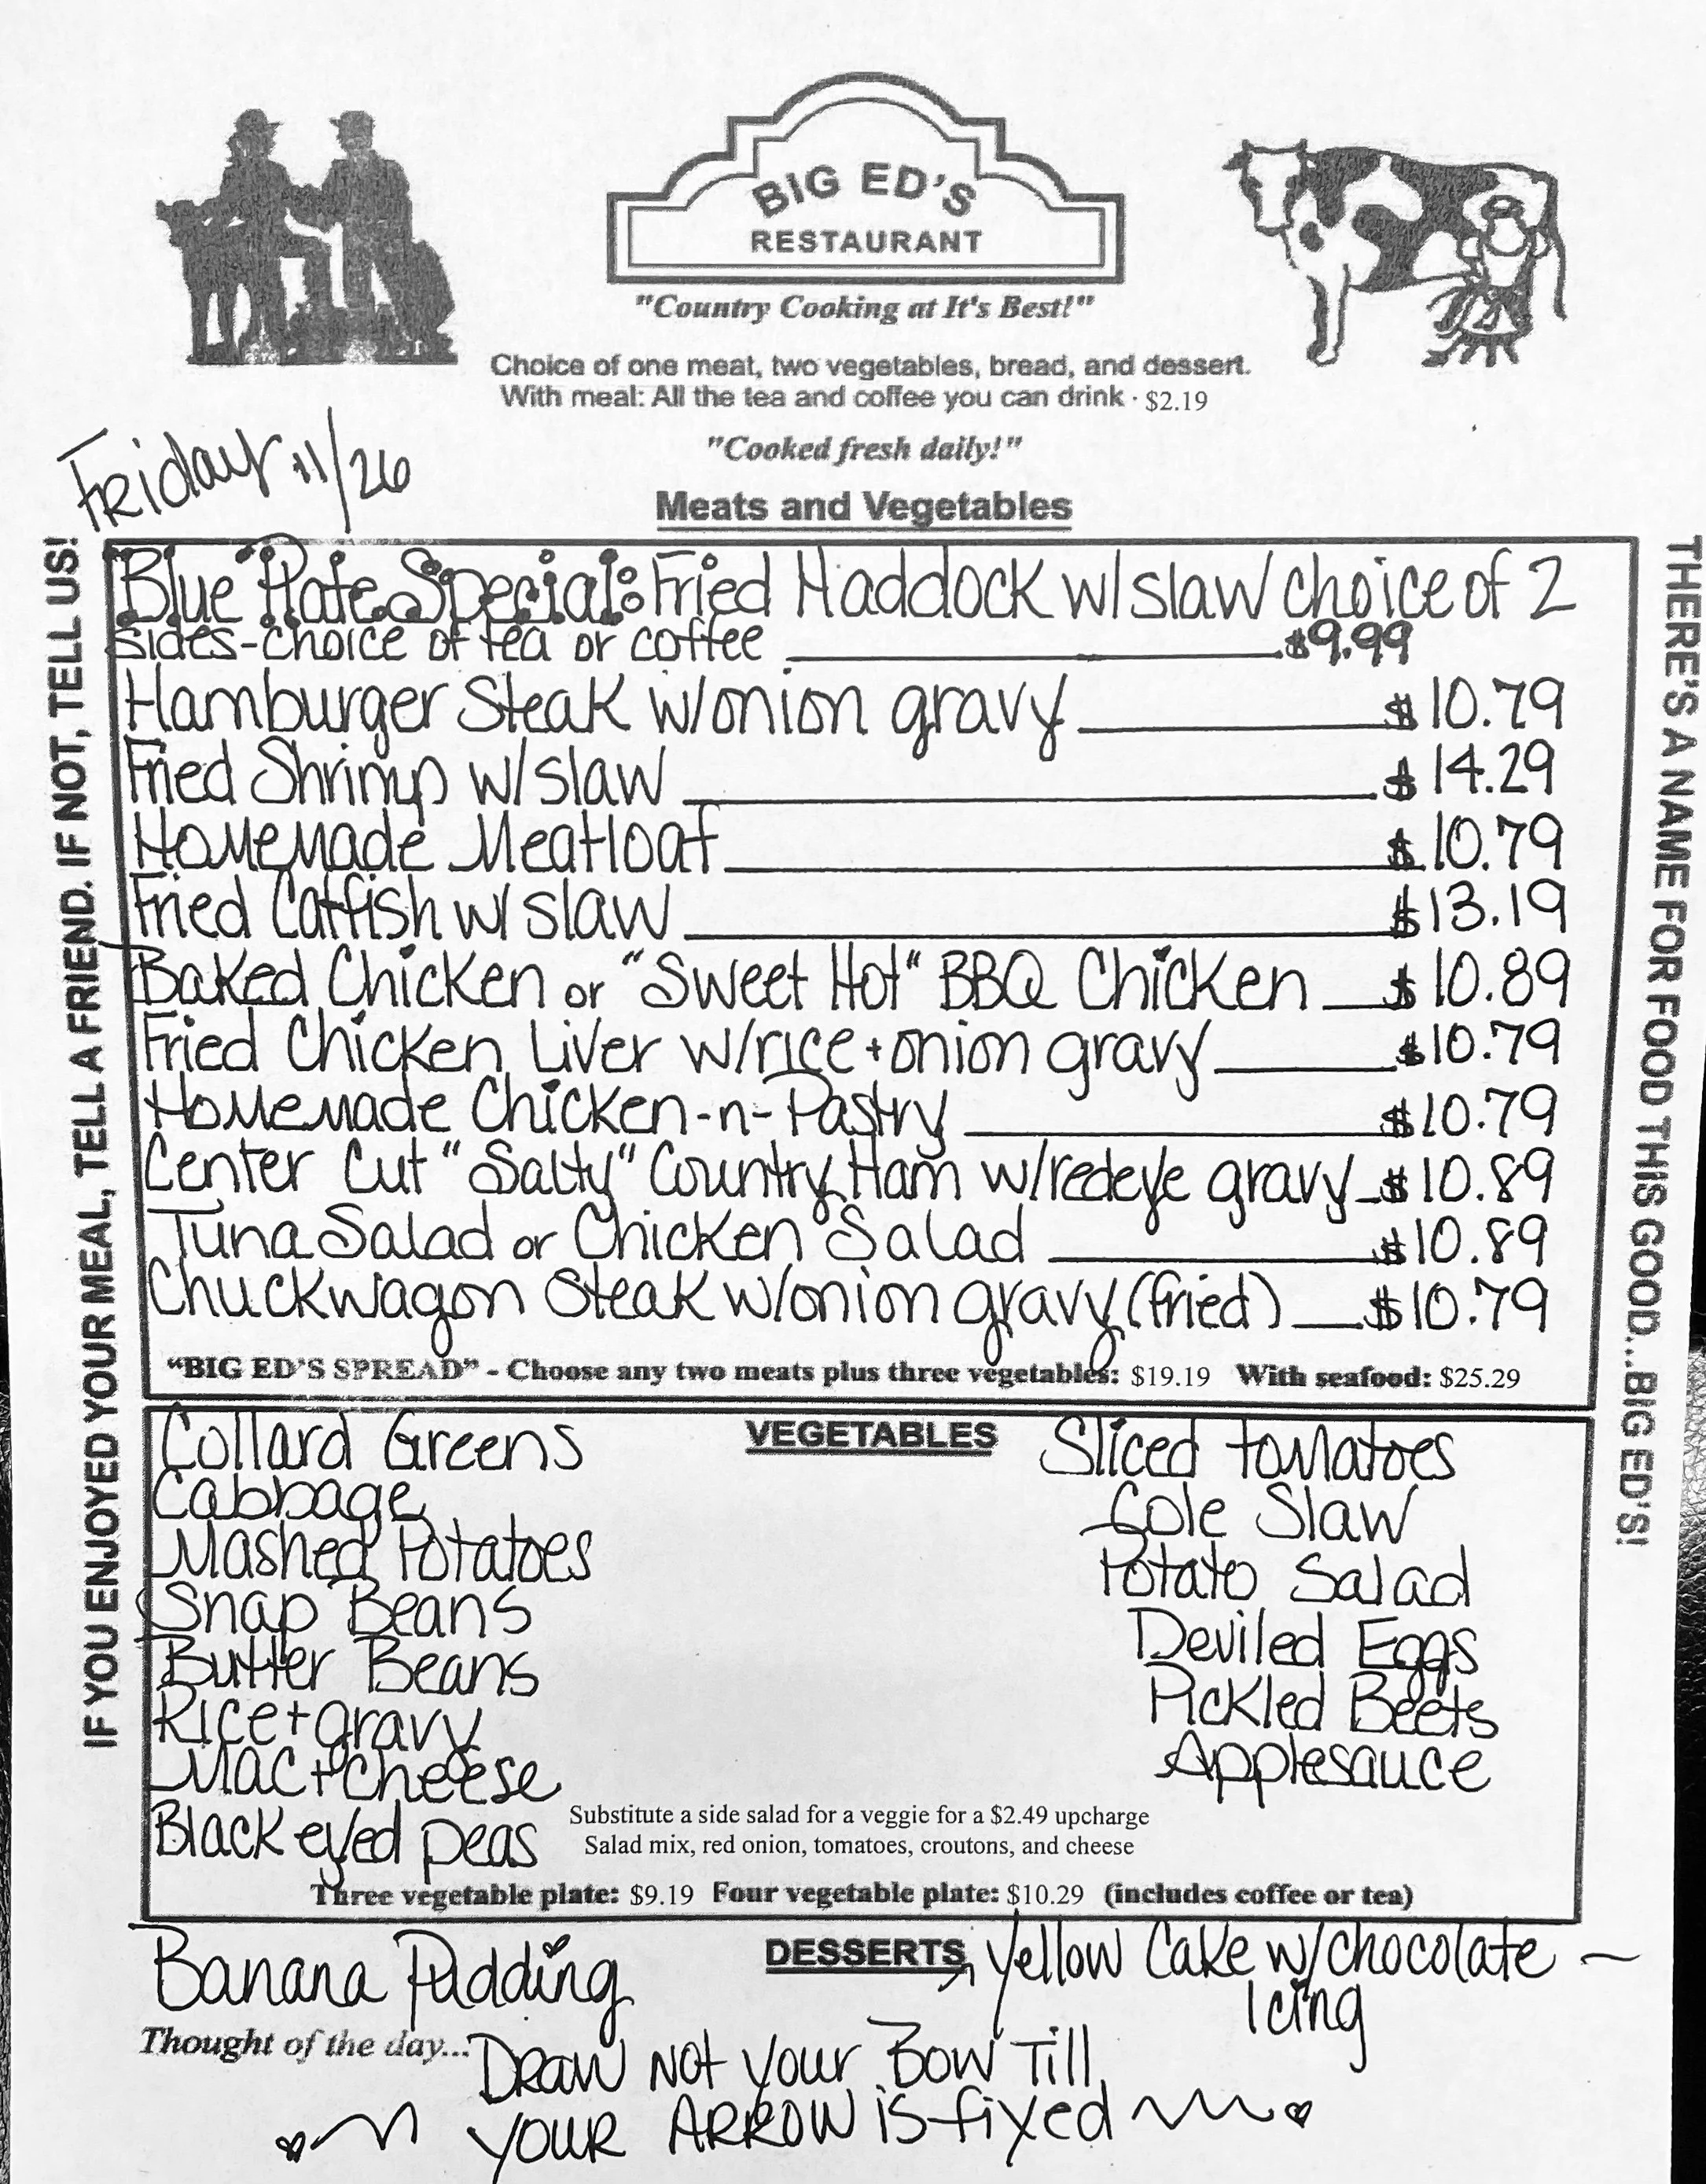 BIG ED'S
RESTAURANT
"Country Cooking at It's Best!"
Choice of one meat, two vegetables, bread, and dessert.
With meal: All the tea and coffee you can drink · $2.19
"Cooked fresh daily!"
Friday 11/26
Meats and Vegetables
IF YOU ENJOYED YOUR MEAL, TELL A FRIEND. IF NOT, TELL US!
THERE'S A NAME FOR FOOD THIS GOOD...BIG ED'S!
Blue Plate Special: Fried Haddock w/slaw choice of 2
sides-choice of tea or coffee $9.99
Hamburger Steak w/onion gravy $10.79
Fried Shrimp w/slaw $14.29
Homemade Meatloaf $10.79
Fried Catfish w/ slaw $13.19
Baked Chicken or "Sweet Hot" BBQ Chicken $10.89
Fried Chicken Liver w/rice + onion gravy $10.79
Homemade Chicken-n-Pastry $10.79
Center Cut "Salty" Country Ham w/redeye gravy $10.89
Tuna Salad or Chicken Salad $10.89
Chuckwagon Steak w/onion gravy (fried) $10.79
"BIG ED'S SPREAD" - Choose any two meats plus three vegetables: $19.19 With seafood: $25.29
VEGETABLES
Collard Greens
Cabbage
Mashed Potatoes
Snap Beans
Butter Beans
Rice + gravy
Mac + cheese
Black eyed peas
Sliced tomatoes
Cole Slaw
Potato Salad
Deviled Eggs
Pickled Beets
Applesauce
Substitute a side salad for a veggie for a $2.49 upcharge
Salad mix, red onion, tomatoes, croutons, and cheese
Three vegetable plate: $9.19 Four vegetable plate: $10.29 (includes coffee or tea)
DESSERTS
Banana Pudding
Yellow Cake w/chocolate
Icing
Thought of the day... Draw not your Bow Till
your ARROW is fixed